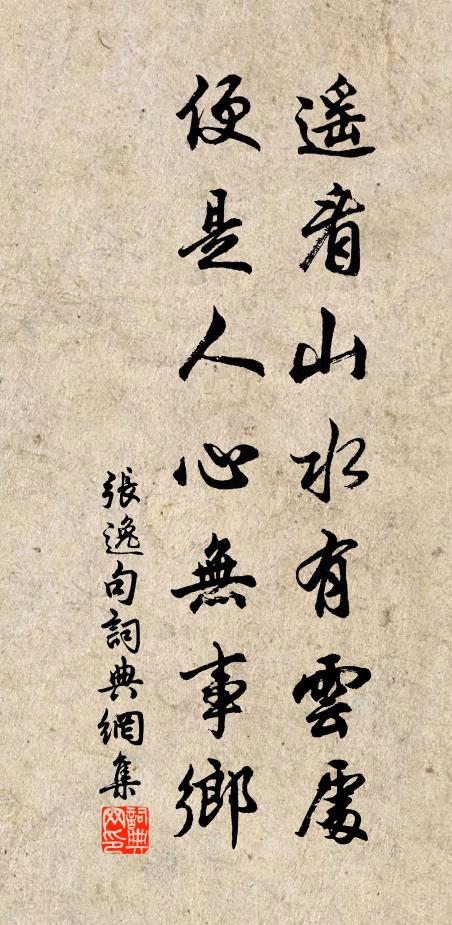 遥看山水有雲處
便是人心無事鄉
張逸句詞典網集
詞典網印